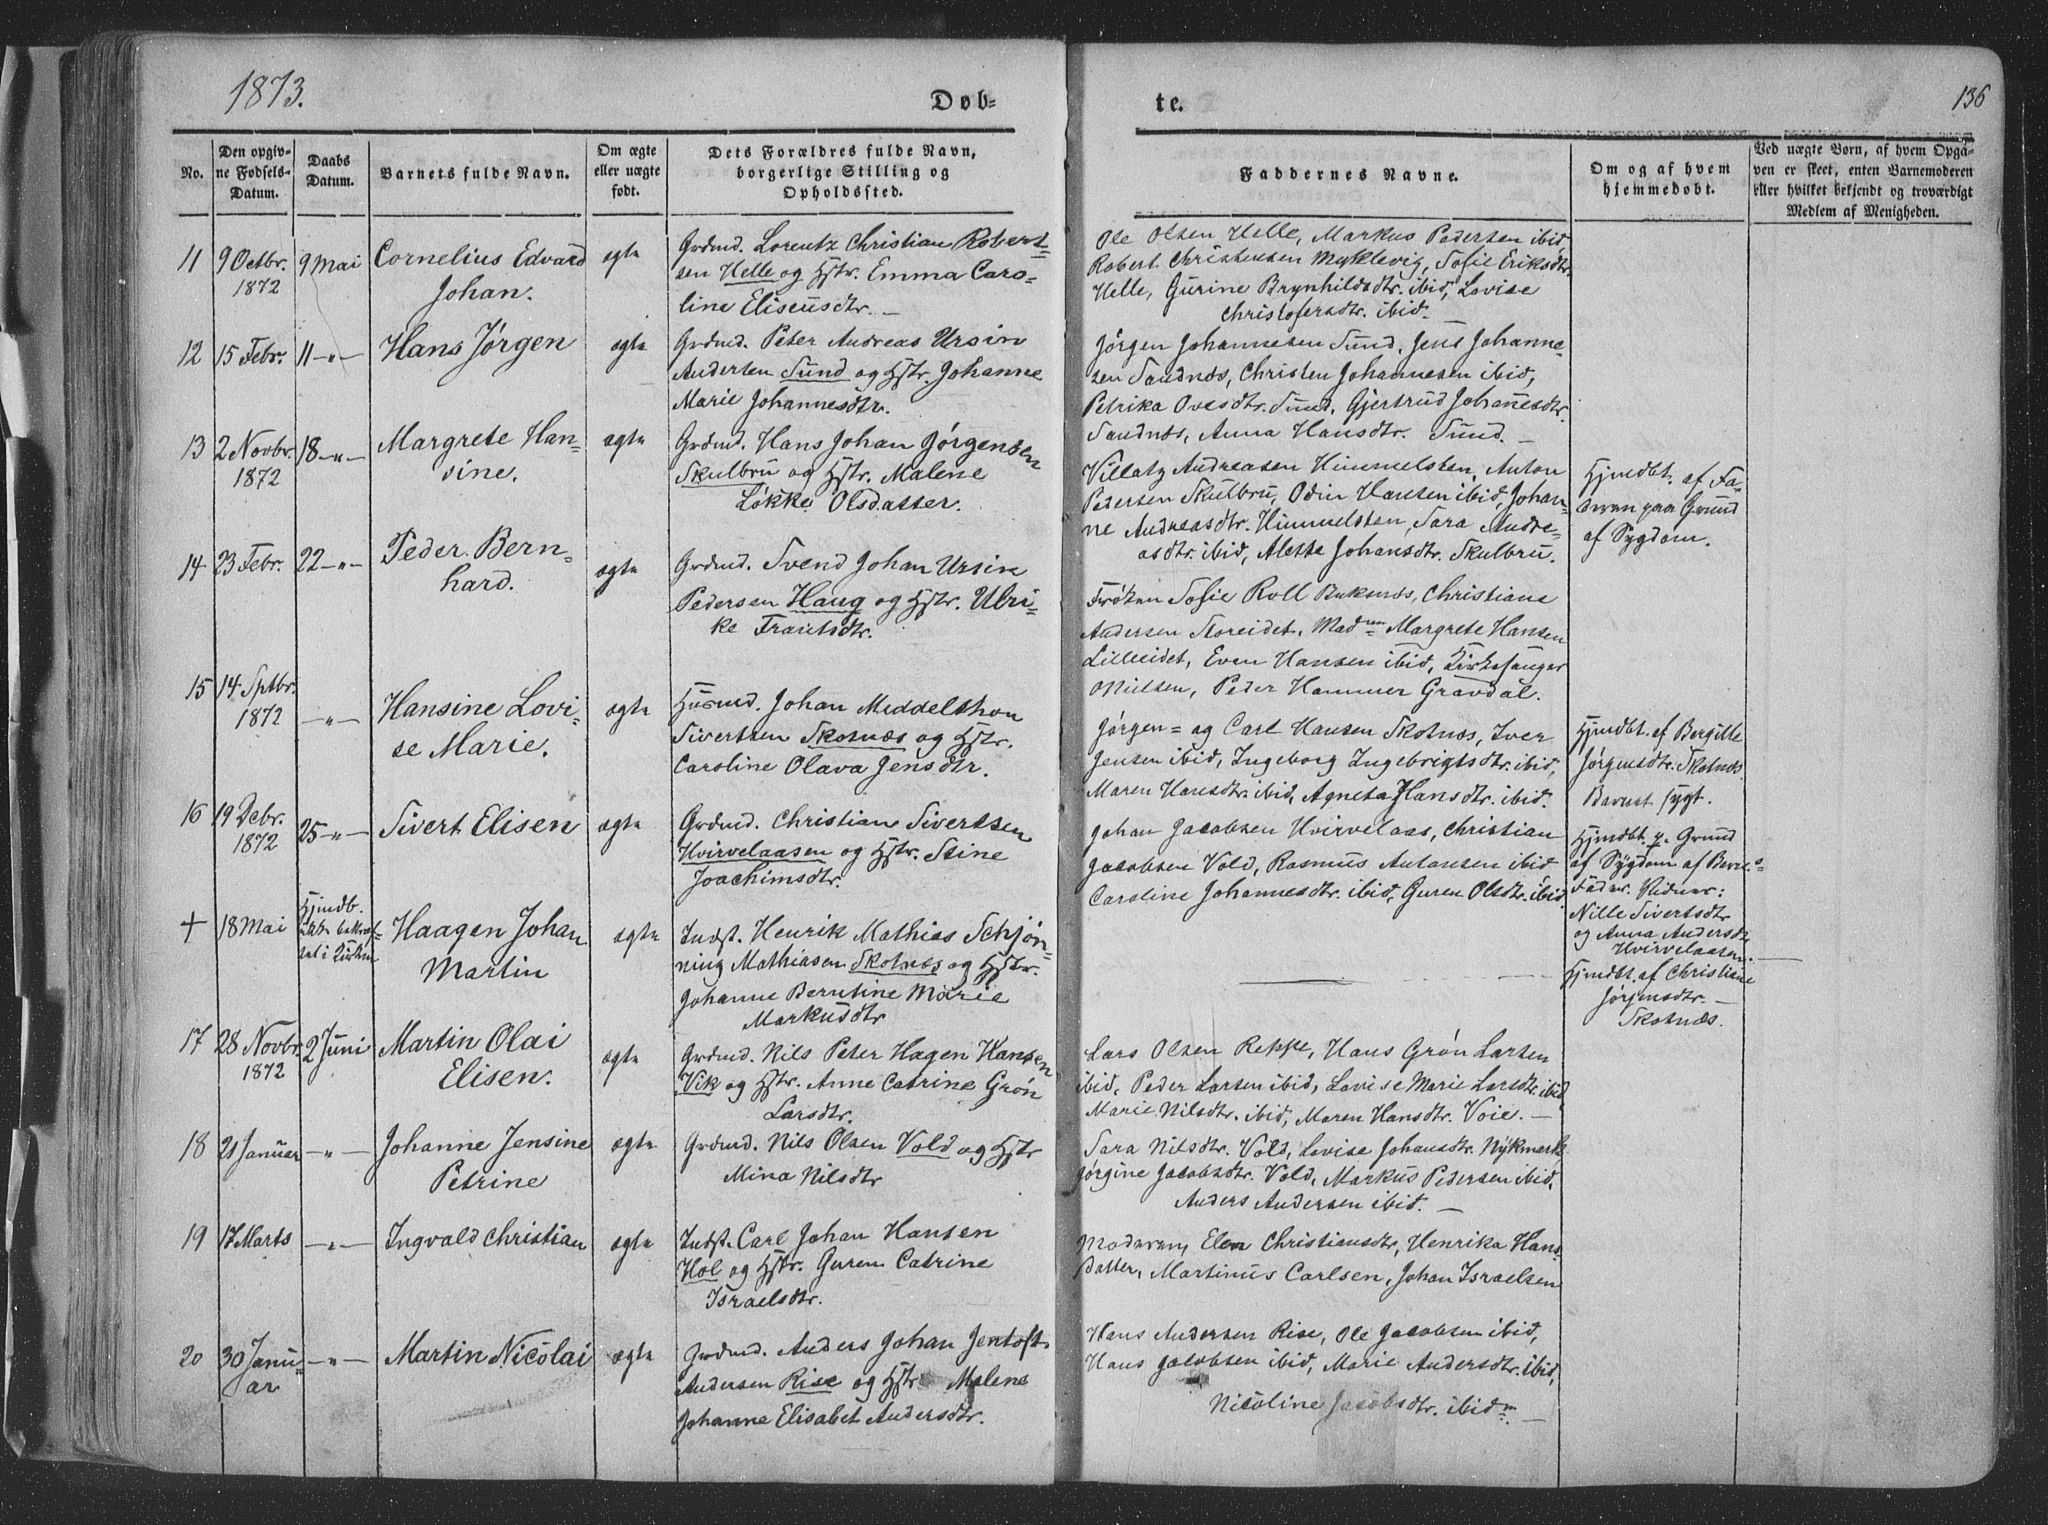 1873.
Døb-
te.
136
No.
Den opgiv-
ne Fødsels-
Datum.
Daabs
Datum.
Barnets fulde Navn.
Om ægte
eller uægte
født.
Dets Forældres fulde Navn,
borgerlige Stilling og
Opholdssted.
Faddernes Navne.
Om og af hvem
hjemmedøbt.
Ved uægte Børn, af hvem Opga-
ven er skeet, enten Barnemoderen
eller hvilket bekjendt og troværdigt
Medlem af Menigheden.
11
9 Octbr.
1872
9 Mai
Cornelius Edvard
Johan.
ægte
Grdmd. Lorentz Christian Robert-
sen Helle og Hstr. Emma Caro-
line Eliseusdtr. —
Ole Olsen Helle, Markus Pedersen ibid,
Robert Christensen Myklevig, Sofie Eriksdtr.
Helle, Gurine Brynhildsdtr. ibid, Lovise
Christofersdtr. ibid. —
12
15 Febr.
11 —"—
Hans Jørgen
ægte
Grdmd. Peter Andreas Ursin
Andersen Sund og Hstr. Johanne
Marie Johannesdtr.
Jørgen Johannesen Sund, Jens Johanne-
sen Sandnæs, Christen Johannesen ibid,
Petrika Ovesdtr. Sund, Gjertrud Johanesdtr.
Sandnæs, Anna Hansdtr. Sund. —
13
2 Novbr.
1872
18 —"—
Margrete Han-
sine.
ægte
Grdmd. Hans Johan Jørgensen
Skulbru og Hstr. Malene
Løkke Olsdatter.
Villatz Andreasen Himmelsten, Anton
Pedersen Skulbru, Odin Hansen ibid, Johan-
ne Andreasdtr. Himmelsten, Sara Andre-
asdtr. ibid, Alette Johansdtr. Skulbru.
Hjmdbt. af Fa-
deren paa Grund
af Sygdom.
14
23 Febr.
22 —"—
Peder Bern-
hard.
ægte
Grdmd. Svend Johan Ursin
Pedersen Haug og Hstr. Ulri-
ke Frantsdtr.
Frøken Sofie Roll Buksnæs, Christiane
Andersen Storeidet, Madm Margrete Hansen
Lilleeidet, Even Hansen ibid, Kirkesanger
Nielsen, Peder Hammer Gravdal.
15
14 Sptbr.
1872
—"—
Hansine Lovi-
se Marie.
ægte
Husmd. Johan Middelthon
Sivertsen Skotnæs og Hstr.
Caroline Olava Jensdtr.
Jørgen = og Carl Hansen Skotnæs, Iver
Jensen ibid, Ingeborg Ingebrigtsdtr. ibid,
Maren Hansdtr. ibid, Agneta Hansdtr. ibid.
Hjmdbt. af Bergitte
Jørgensdtr. Skotnæs.
Barnet sygt.
16
19 Debr.
1872
25 —"—
Sivert Elisen
ægte
Grdmd. Christian Sivertsen
Hvirvelaasen og Hstr. Stine
Joachimsdtr.
Johan Jacobsen Hvirvelaas, Christian
Jacobsen Vold, Rasmus Antonsen ibid
Caroline Johannesdtr. ibid, Guren Olsdtr. ibid
Hjmdbt. p. Grund
af Sygdom af Barnets
Fader. Vidner:
Nille Sivertsdtr
og Anna Andersdtr
Hvirvelaasen.
+
18 Mai
Hjmdb.
ikke bekræf-
tet i Kirken
Haagen Johan
Martin
ægte
Indst. Henrik Mathias Schjøn-
ning Mathiasen Skotnæs og Hstr.
Johanne Berntine Marie
Markusdtr
Hjmdbt. af Christiane
Jørgensdtr. —
Skotnæs.
17
28 Novbr.
1872
2 Juni
Martin Olai
Elisen.
ægte
Grdmd. Nils Peter Hagen Hansen
Vik og Hstr. Anne Catrine Grøn
Larsdtr.
Lars Olsen Reppe, Hans Grøn Larsen
ibid, Peder Larsen ibid, Lovise Marie Larsdtr. ibid,
Marie Nilsdtr. ibid, Maren Hansdtr. Voie. —
18
21 Januar
—"—
Johanne Jensine
Petrine
ægte
Grdmd. Nils Olsen Vold og Hstr
Mina Nilsdtr
Sara Nilsdtr. Vold, Lovise Johansdtr. Nykmark
Jørgine Jacobsdtr. Vold, Markus Pedersen ibid,
Anders Andersen ibid. —
19
17 Marts
—"—
Ingvald Christian
ægte
Indst. Carl Johan Hansen
Hol og Hstr. Guren Catrine
Israelsdtr.
Moderen, Elen Christiansdtr, Henrika Hans-
datter, Martinus Carlsen, Johan Israelsen
20
30 Janu-
ar
—"—
Martin Nicolai
ægte
Grdmd. Anders Johan Jentoft
Andersen Rise og Hstr Malene
Johanne Elisabet Andersdtr.
Hans Andersen Rise, Ole Jacobsen ibid,
Hans Jacobsen ibid, Marie Andersdtr. ibid,
Nicoline Jacobsdtr. ibidm —